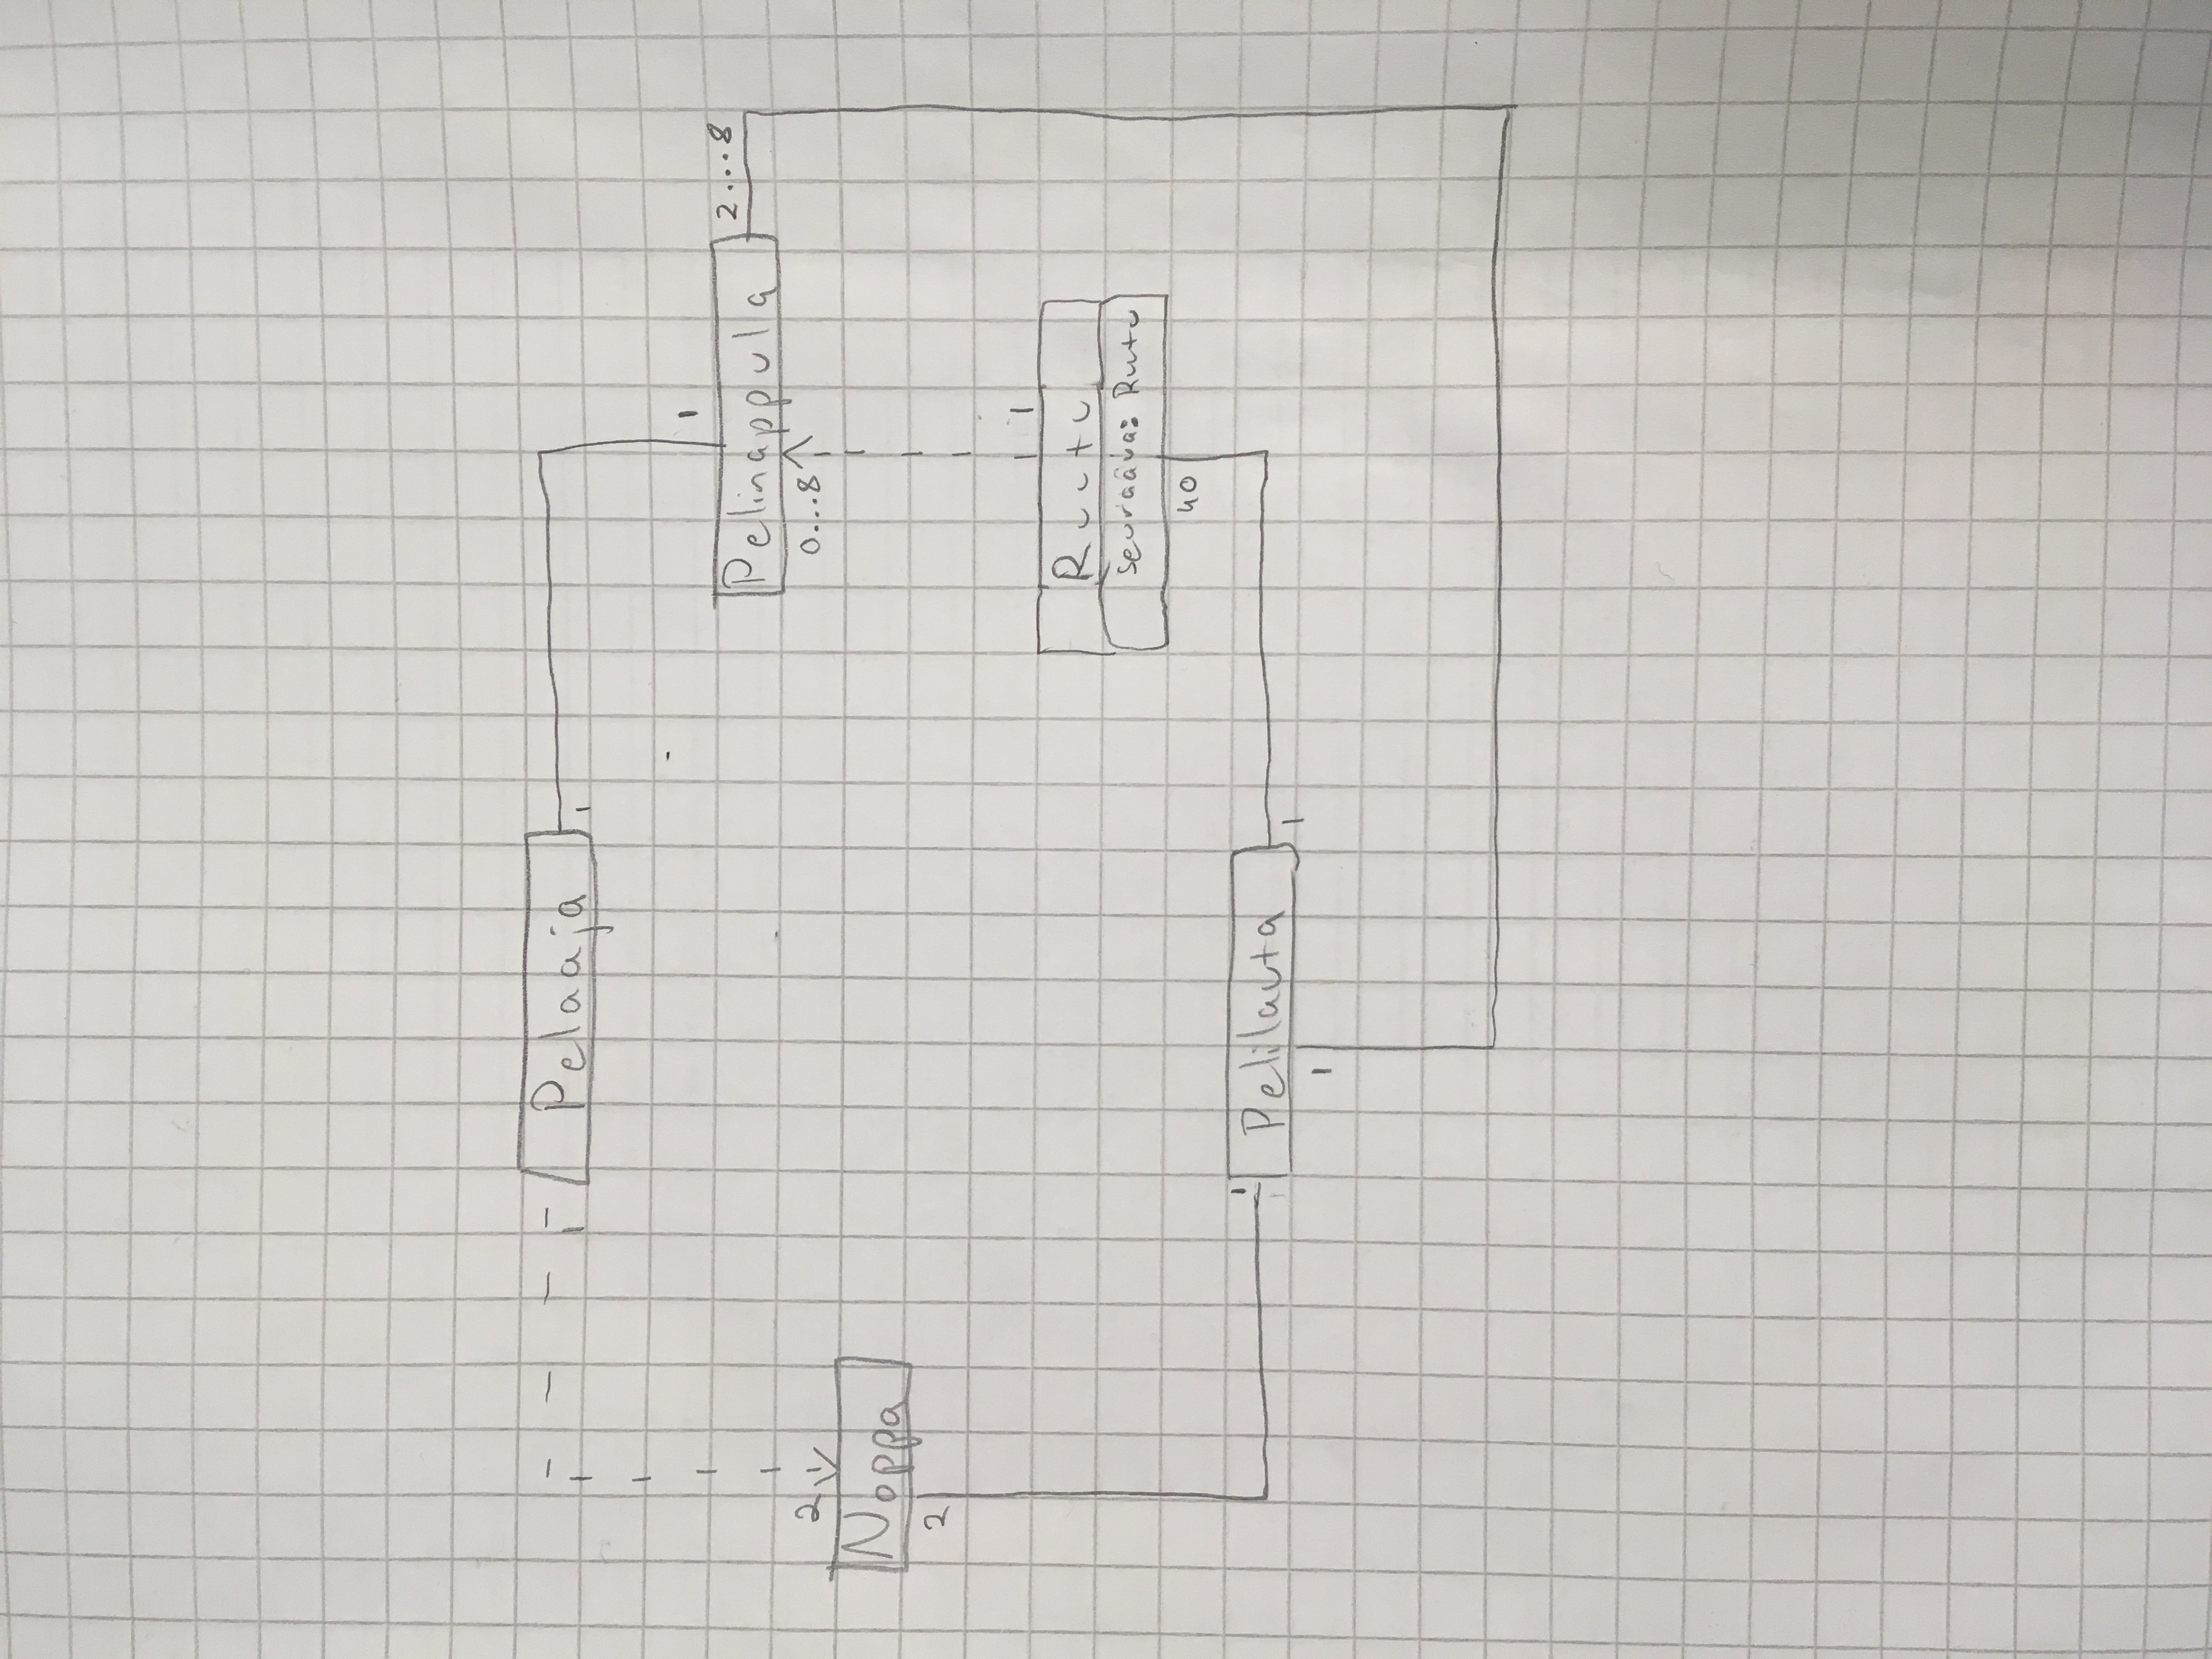 Pelaaja
1
1
1
Pelinappula
2...8
0...8
2
Noppa
2
1
Ruutu
seuraava: Ruutu
40
1
Pelilauta
1
1